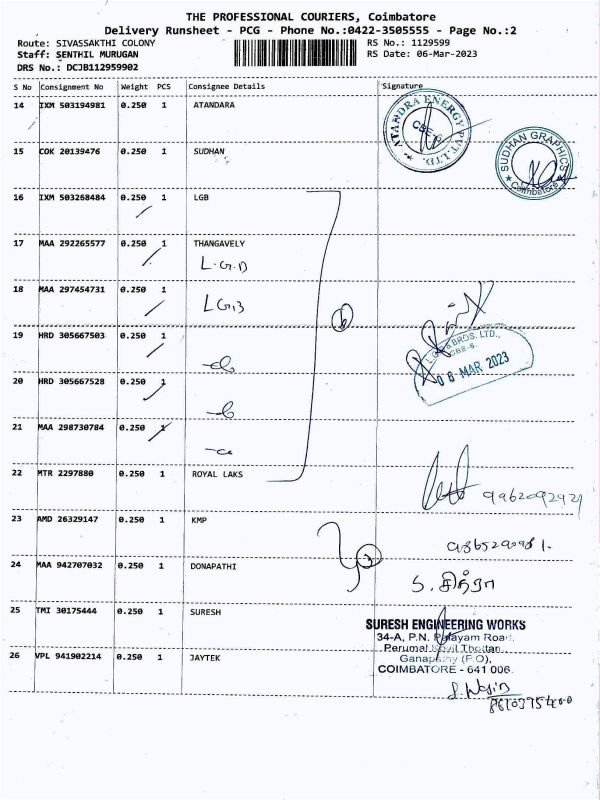 THE PROFESSIONAL COURIERS, Coimbatore
Delivery Runsheet - PCG - Phone No.:0422-3505555 - Page No.:2
Route: SIVASSAKTHI COLONY
RS No.: 1129599
Staff: SENTHIL MURUGAN
RS Date: 06-Mar-2023
DRS No.: DCJB112959902
S No Consignment No Weight PCS Consignee Details Signature
14 IXM 503194981 0.250 1 ATANDARA
ATANDRA ENERGY PVT. LTD.
CBE-6
15 COK 20139476 0.250 1 SUDHAN
SUDHAN GRAPHICS
Coimbatore
16 IXM 503268484 0.250 1 LGB
17 MAA 292265577 0.250 1 THANGAVELY
L.G.B
18 MAA 297454731 0.250 1
LGB
19 HRD 305667503 0.250 1
& BROS. LTD.,
CBE-6.
06 MAR 2023
20 HRD 305667528 0.250 1
21 MAA 298730784 0.250 1
22 MTR 2297880 0.250 1 ROYAL LAKS
23 AMD 26329147 0.250 1 KMP
24 MAA 942707032 0.250 1 DONAPATHI
S. சித்ரா
25 TMI 30175444 0.250 1 SURESH
SURESH ENGINEERING WORKS
34-A, P.N. Palayam Road,
Perumal Kovil Thottan,
Ganapathy (P.O),
COIMBATORE - 641 006.
26 VPL 941902214 0.250 1 JAYTEK